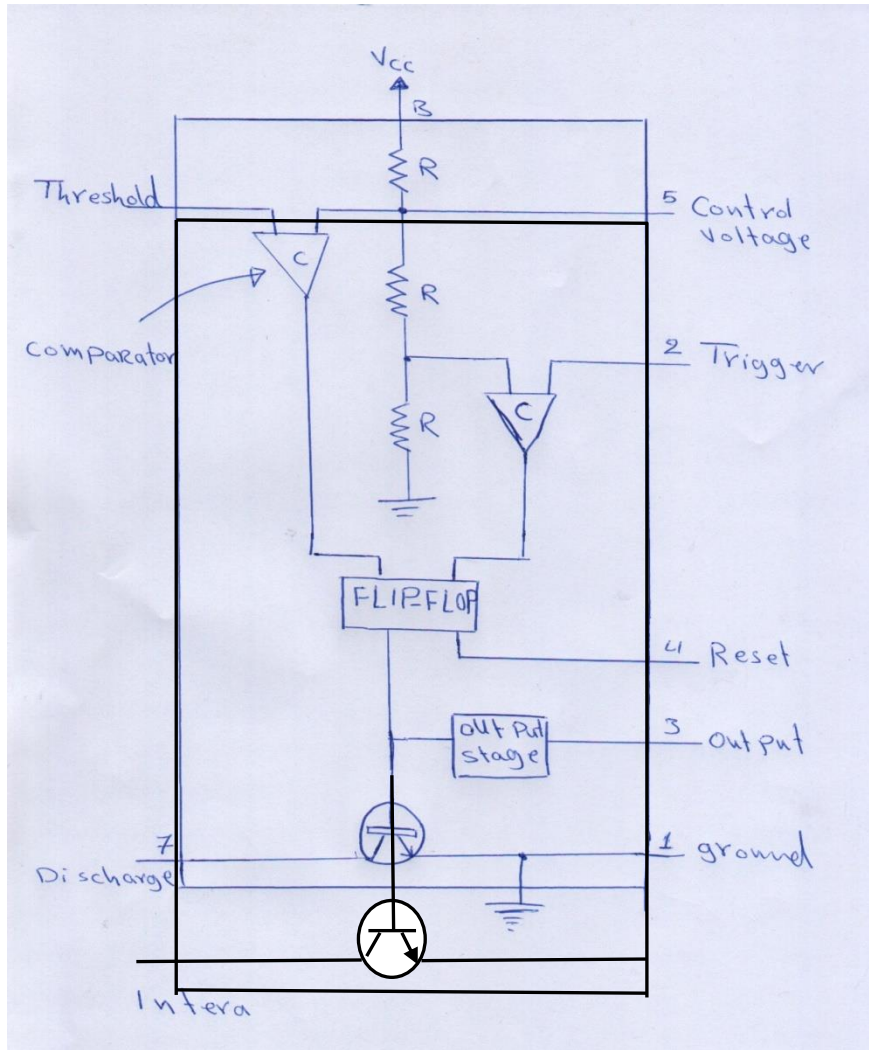 Vcc
B
R
Threshold
5 Control
voltage
C
R
comparator
2 Trigger
C
R
FLIP-FLOP
4 Reset
output
stage
3 output
7
1 ground
Discharge
Intera